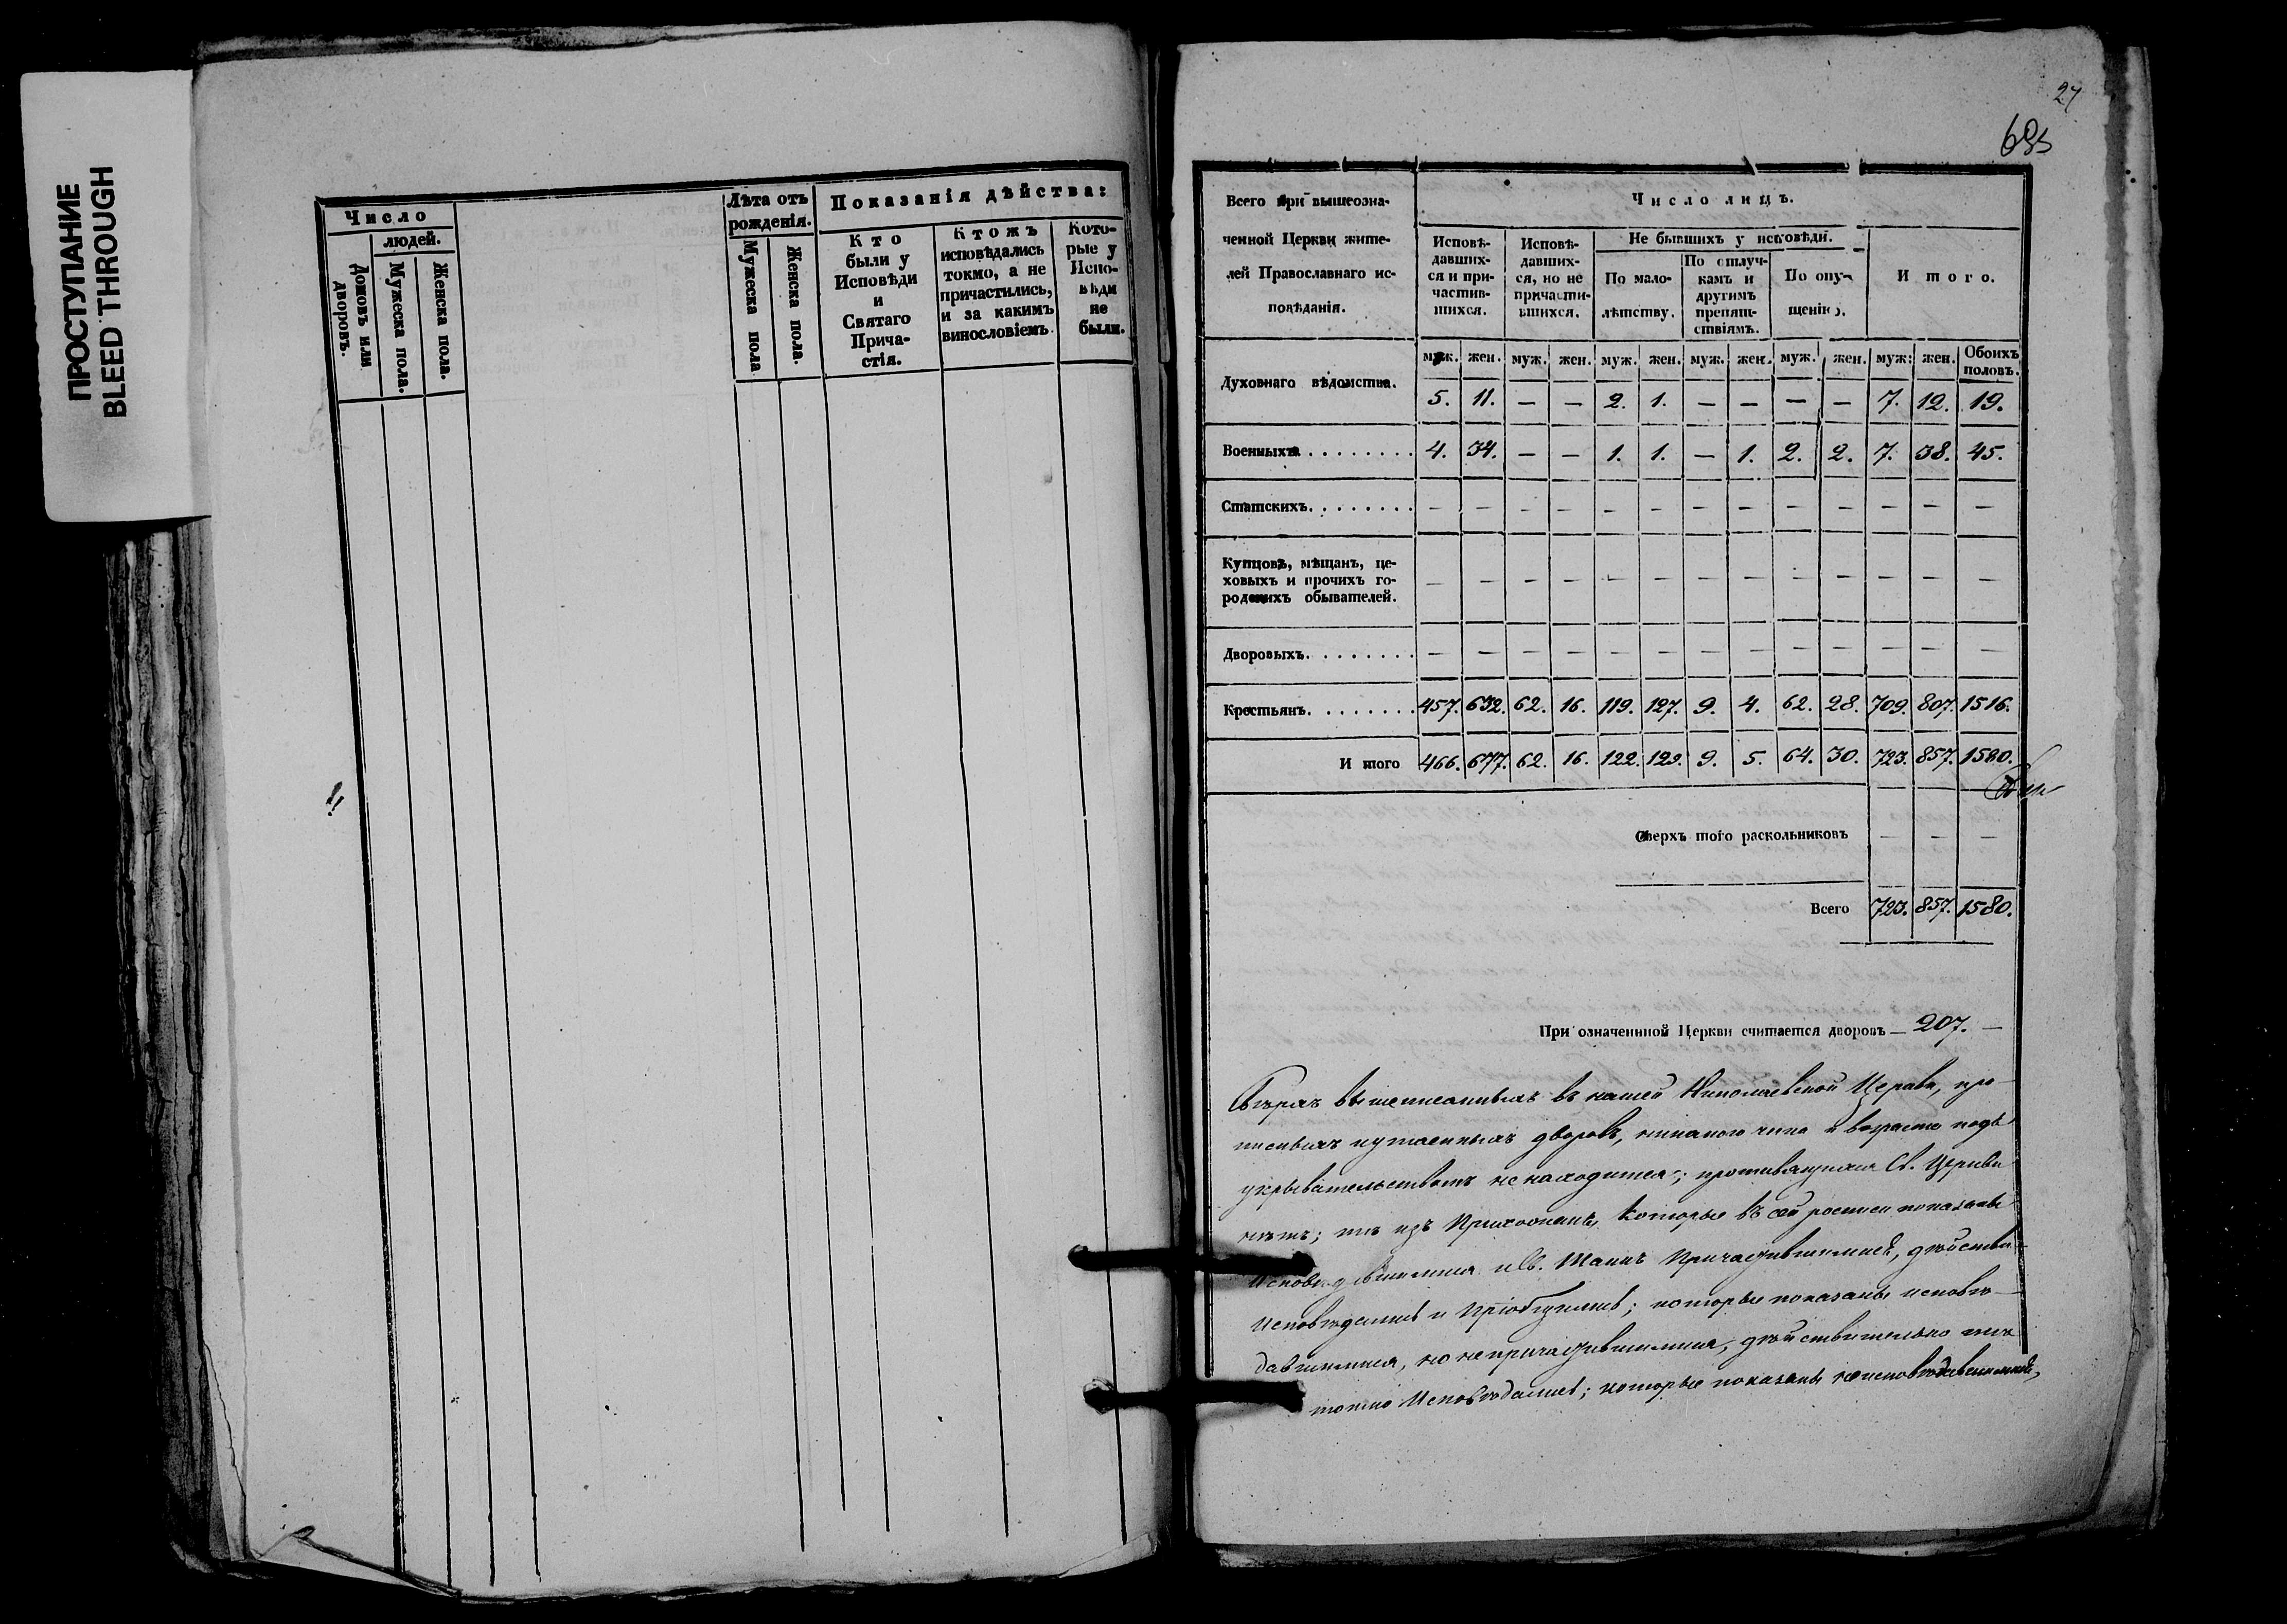 ПРОСТУПАНИЕ
BLEED THROUGH
Число
людей.
Домовъ или дворовъ.
Мужеска пола.
Женска пола.
Лѣта отъ рожденія.
Мужеска пола
Женска пола.
Показанія дѣйства:
Кто были у Исповѣди и Святаго Прича-стія.
Ктожъ исповѣдались токмо, а не причастились, и за какимъ винословіемъ.
Кото-рые у Испо-вѣди не были.
27
Всего при вышеозна-
ченной Церкви жите-
лей Православнаго ис-
повѣданія.
Число лицъ.
Исповѣ-давших-ся и при-частив-шихся.
Исповѣ-давших-ся, но не причасти-вшихся.
Не бывшихъ у исповѣди.
По мало-лѣтству.
По отлуч-камъ и другимъ препят-ствіямъ.
По опу-щенію.
Итого.
муж. жен. муж. жен. муж. жен. муж. жен. муж. жен. муж: жен. Обоихъ половъ.
Духовнаго вѣдомства. 5. 11. — — 2. 1. — — — — 7. 12. 19.
Военныхъ . . . . . . . . 4. 34. — — 1. 1. — 1. 2. 2. 7. 38. 45.
Статскихъ. . . . . . . . — — — — — — — — — — — — —
Купцовъ, мѣщанъ, це-
ховыхъ и прочихъ го-
родскихъ обывателей. — — — — — — — — — — — — —
Дворовыхъ. . . . . . . . — — — — — — — — — — — — —
Крестьянъ. . . . . . . . 457. 632. 62. 16. 119. 127. 9. 4. 62. 28. 709. 807. 1516.
И того 466. 677. 62. 16. 122. 129. 9. 5. 64. 30. 723. 857. 1580.
Сверхъ того раскольниковъ — — —
Всего 723. 857. 1580.
При означенной Церкви считается дворовъ — 207. —
вышеписанныхъ въ нашей Николаевской Церкви, про-
писныхъ и утаенныхъ дворовъ, никакого чина и возраста подъ
укрывательствомъ не находится; противляющихся Св. Церкви
нѣтъ; тѣ изъ Прихожанъ, которые въ сей росписи показаны
Исповѣдавшимися и Св. Таинъ Причастившимися, дѣйстви-
Исповѣдались и Пріобщились; которые показаны исповѣ-
давшимися, но не причастившимися, дѣйствительно
токмо Исповѣдались; которые показаны неисповѣдавшимися,